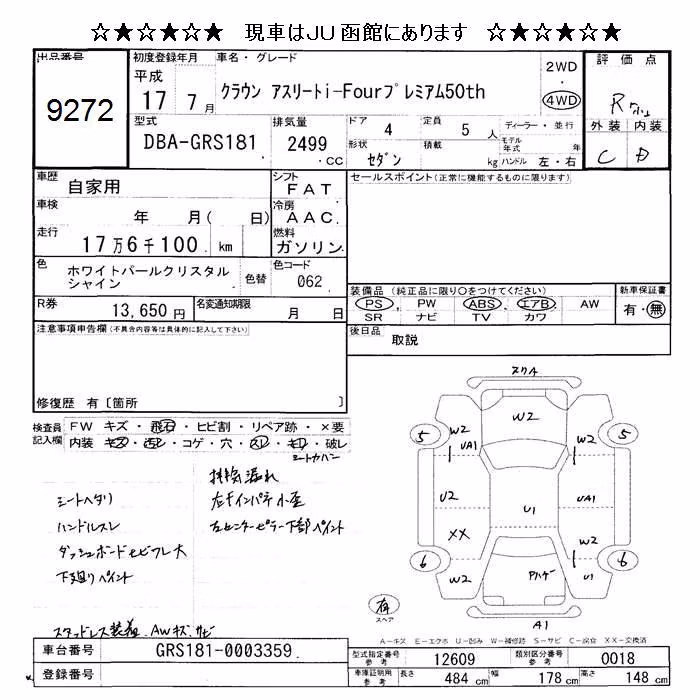 ☆★☆★☆★ 現車はJU函館にあります ☆★☆★☆★
出品番号
9272
初度登録年月
平成
17 7月
車名・グレード
クラウン アスリートi-Fourプレミアム50th
2WD
・
4WD
評価点
R
外装 内装
C D
型式
DBA-GRS181
排気量
2499
.CC
ドア 4
定員 5 人
形状 セダン
積載 kg
ディーラー・並行
モデル年式 年
ハンドル 左・右
車歴
自家用
シフト
FAT
車検
年 月( 日)
冷房
AAC
走行
17万6千100 km
燃料
ガソリン
色
ホワイトパールクリスタル
シャイン
色替
色コード
062
R券
13,650円
名変通知期限
月 日
セールスポイント(正常に機能するものに限ります)
装備品(純正品に限り○をつけてください)
PS PW ABS エアB AW
SR ナビ TV カワ
新車保証書
有・無
後日品
取説
注意事項申告欄(不具合内容等は具体的に記入して下さい)
修復歴 有〔箇所 〕
検査員
記入欄
FW キズ・飛石・ヒビ割・リペア跡・×要
内装 キズ・ヨゴレ・コゲ・穴・スレ・キレ・破レ
シートカバー
シートヘタリ
ハンドルスレ
ダッシュボードセビフレ大
下廻りペイント
排気漏れ
左Fインパチ小歪
左センターピラー下部ペイント
スタッドレス装着、AWキズ、サビ
スリA
W2
W2
W2
5
5
UA1
UA1
U2
U1
XX
W2
6
6
W2
U1
A1
有
スペア
A-キズ E-エクボ U-凹み W-補修跡 S-サビ C-腐食 XX-交換済
車台番号
GRS181-0003359
登録番号
型式指定番号
参考
12609
類別区分番号
参考
0018
車庫証明用
参考
長さ 484 cm
幅 178 cm
高さ 148 cm